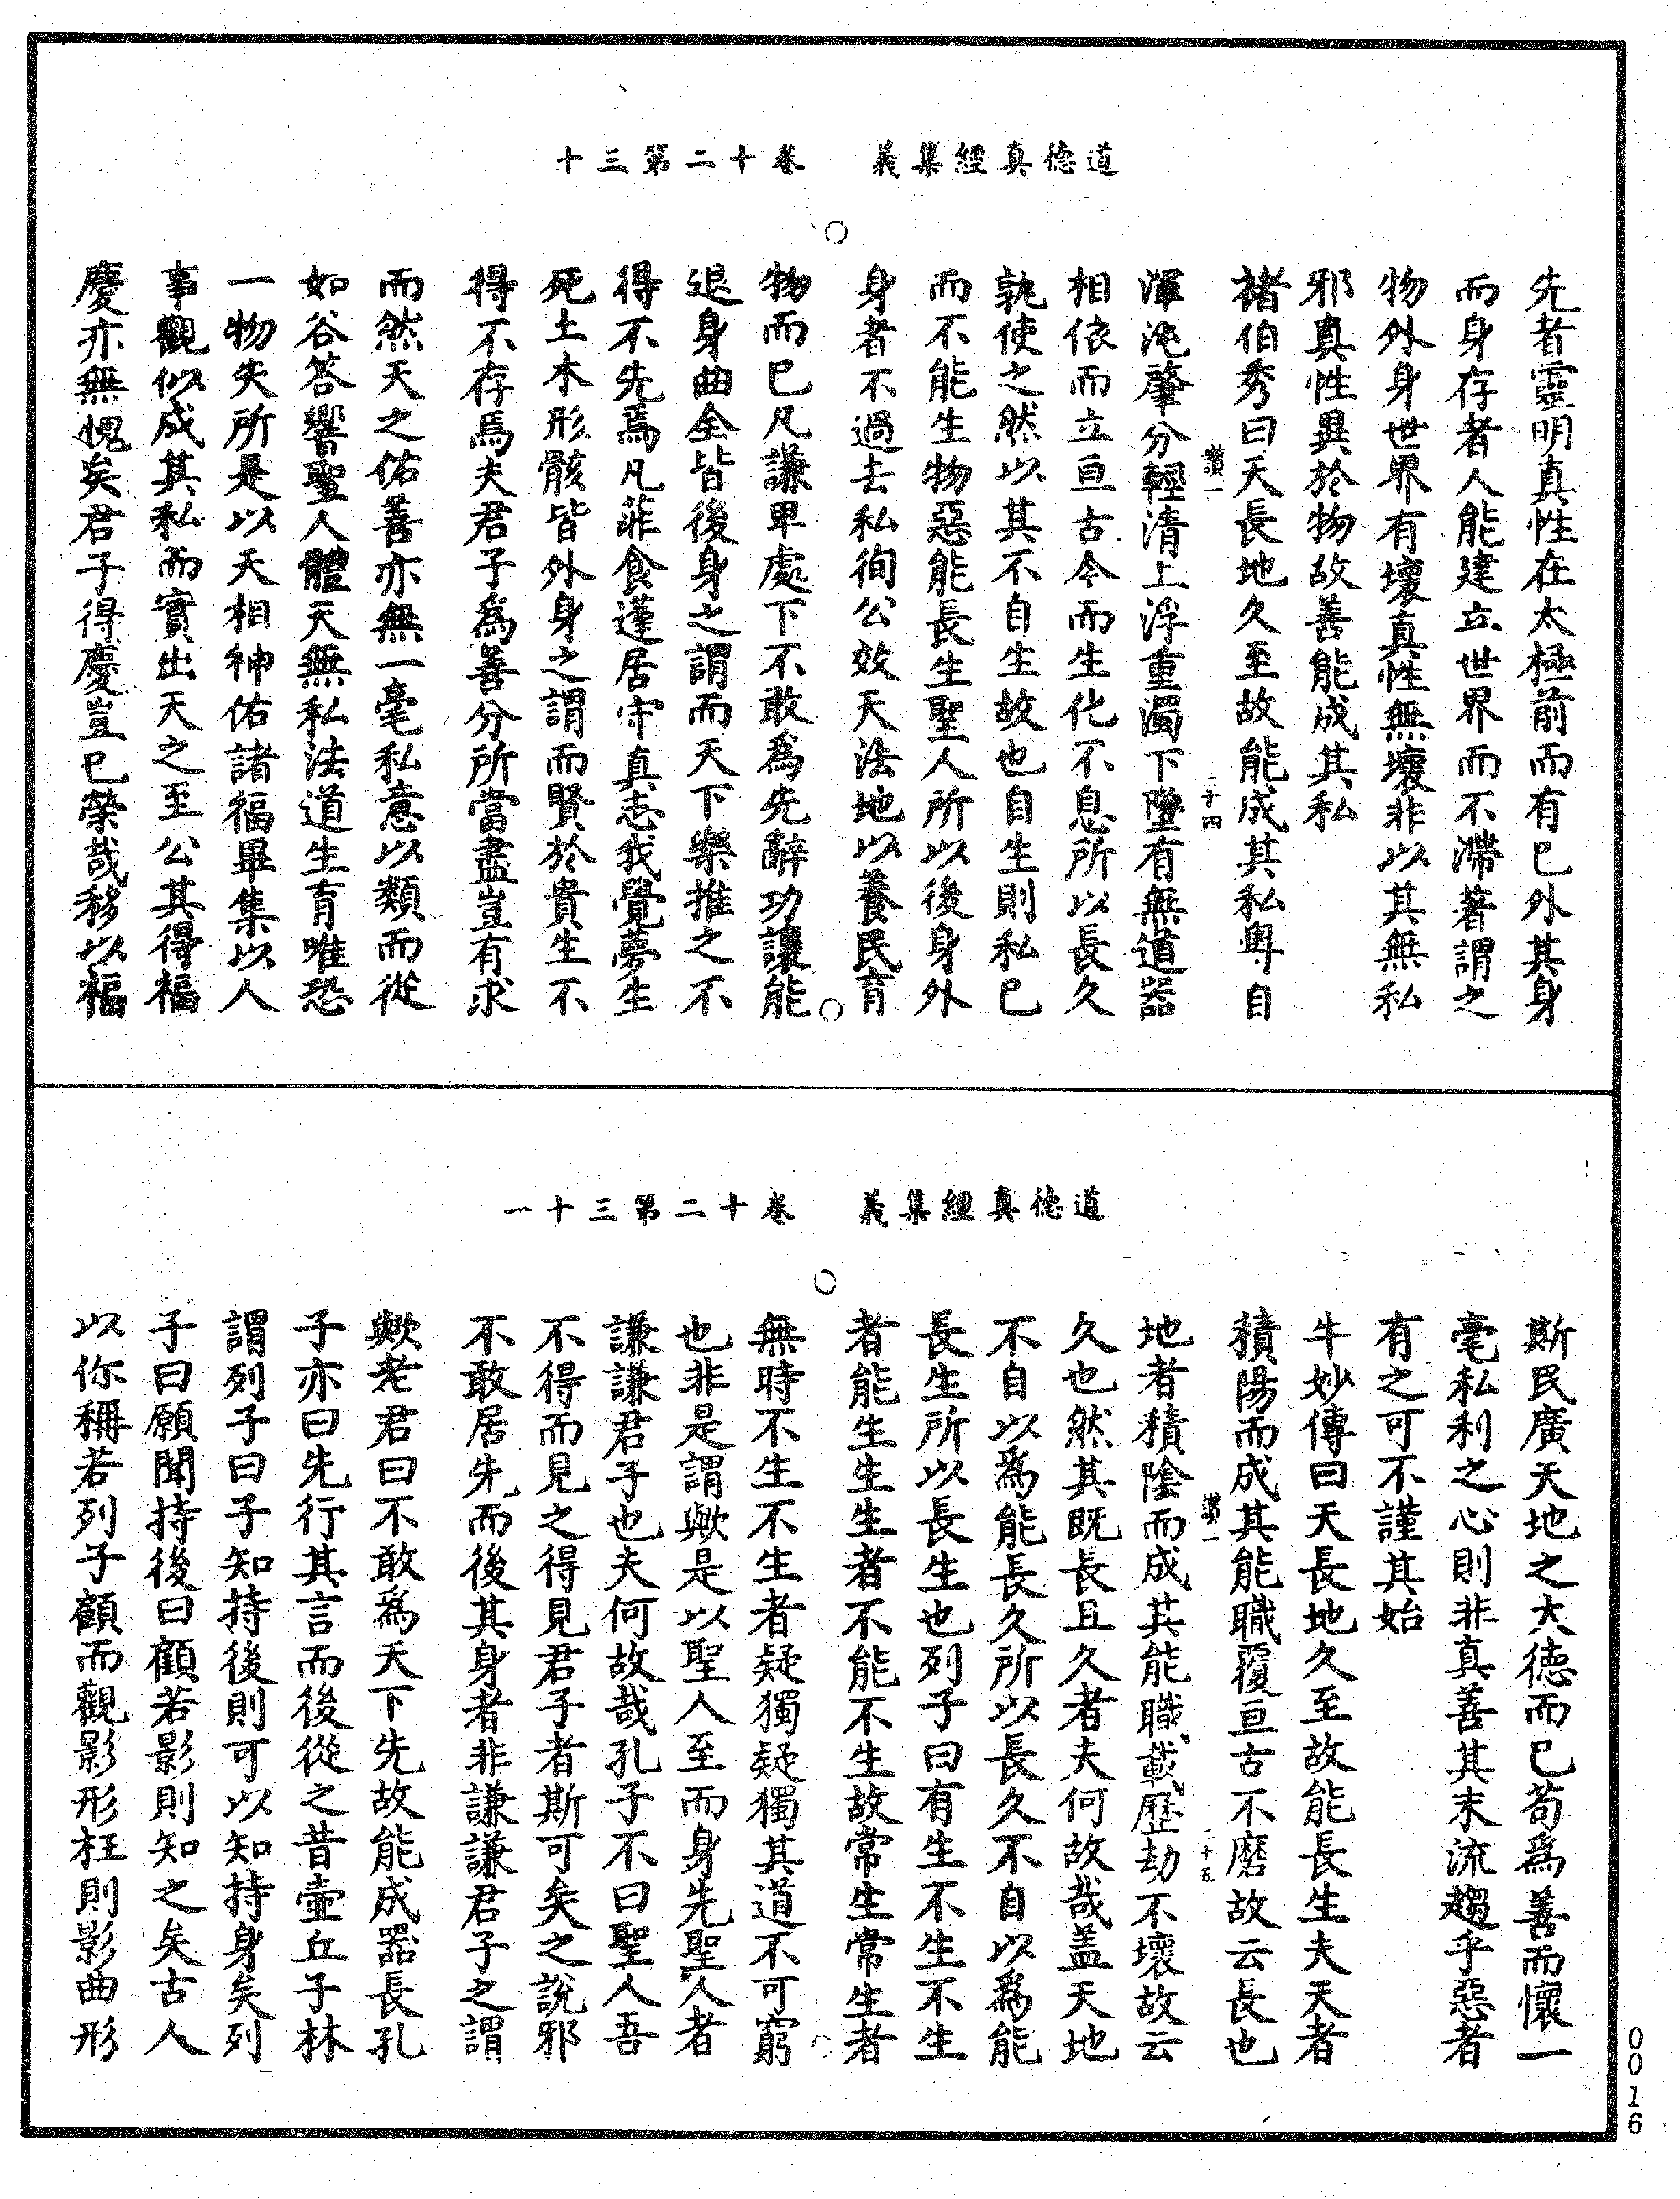 道德真經集義　卷十二第三十
先者靈明真性在太極前而有已外其身
而身存者人能建立世界而不滯著謂之
物外身世界有壞真性無壞非以其無私
邪真性異於物故善能成其私
褚伯秀曰天長地久至故能成其私粤自
渾淪肇分輕清上浮重濁下墜有無道器
相依而立亘古今而生化不息所以長久
孰使之然以其不自生故也自生則私己
而不能生物惡能長生聖人所以後身外
身者不過去私徇公效天法地以養民育
物而已凡謙卑處下不敢為先辭功讓能
退身曲全皆後身之謂而天下樂推之不
得不先焉凡菲食蓬居守真志我覺夢生
死土木形骸皆外身之謂而賢於貴生不
得不存焉夫君子為善分所當盡豈有求
而然天之佑善亦無一毫私意以類而從
如谷答響聖人體天無私法道生育唯恐
一物失所是以天相神佑諸福畢集以人
事觀似成其私而實出天之至公其得福
慶亦無愧矣君子得慶豈已榮哉移以福
道德真經集義　卷十二第三十一
斯民廣天地之大德而已苟為善而懷一
毫私利之心則非真善其末流趨乎惡者
有之可不謹其始
牛妙傳曰天長地久至故能長生夫天者
積陽而成其能職覆亘古不磨故云長也
地者積陰而成其能職載歷劫不壞故云
久也然其既長且久者夫何故哉盖天地
不自以為能長久所以長久不自以為能
長生所以長生也列子曰有生不生不生
者能生生生者不能不生故常生常生者
無時不生不生者疑獨疑獨其道不可窮
也非是謂歟是以聖人至而身先聖人者
謙謙君子也夫何故哉孔子不曰聖人吾
不得而見之得見君子者斯可矣之說邪
不敢居先而後其身者非謙謙君子之謂
歟老君曰不敢為天下先故能成器長孔
子亦曰先行其言而後從之昔壺丘子林
謂列子曰子知持後則可以知持身矣列
子曰願聞持後曰顧若影則知之矣古人
以你稱若列子顧而觀影形枉則影曲形
0016